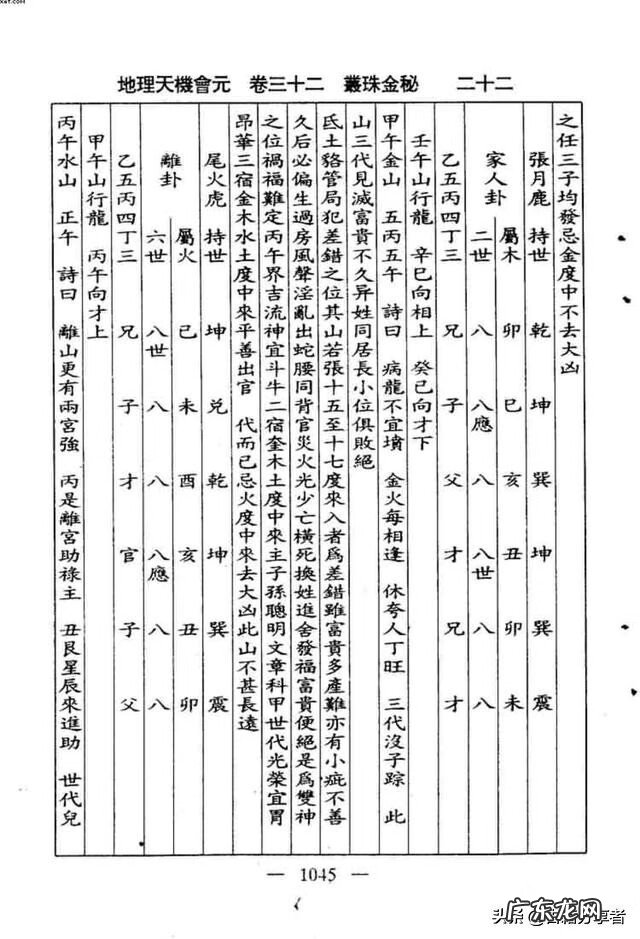 xet.com
地理天機會元 卷三十二 叢珠金秘 二十二
之任三子均發忌金度中不去大凶
張月鹿 持世 乾 坤 巽 坤 巽 震
屬木 卯 巳 亥 丑 卯 未
家人卦
二世 八 八應 八 八世 八 八
乙五丙四丁三 兄 子 父 才 兄 才
壬午山行龍 辛巳向相上 癸巳向才下
甲午金山 五丙五午 詩曰 病龍不宜墳 金火每相逢 休夸人丁旺 三代沒子踪 此
山三代見滅富貴不久异姓同居長小位俱敗絕
氐土貉管局犯差錯之位其山若張十五至十七度來入者爲差錯雖富貴多產難亦有小疵不善
久后必偏生過房風聲淫亂出蛇腰同背官災火光少亡橫死換姓進舍發福富貴便絕是爲雙神
之位禍福難定丙午界吉流神宜斗牛二宿奎木土度中來主子孫聰明文章科甲世代光榮宜胃
昂華三宿金木水土度中來平善出官 代而已忌火度中來去大凶此山不甚長遠
尾火虎 持世 坤 兌 乾 坤 巽 震
屬火 已 未 酉 亥 丑 卯
離卦
六世 八世 八 八 八應 八 八
乙五丙四丁三 兄 子 才 官 子 父
甲午山行龍 丙午向才上
丙午水山 正午 詩曰 離山更有兩宮強 丙是離宮助祿主 丑艮星辰來進助 世代兒
— 1045 —
广东龙网